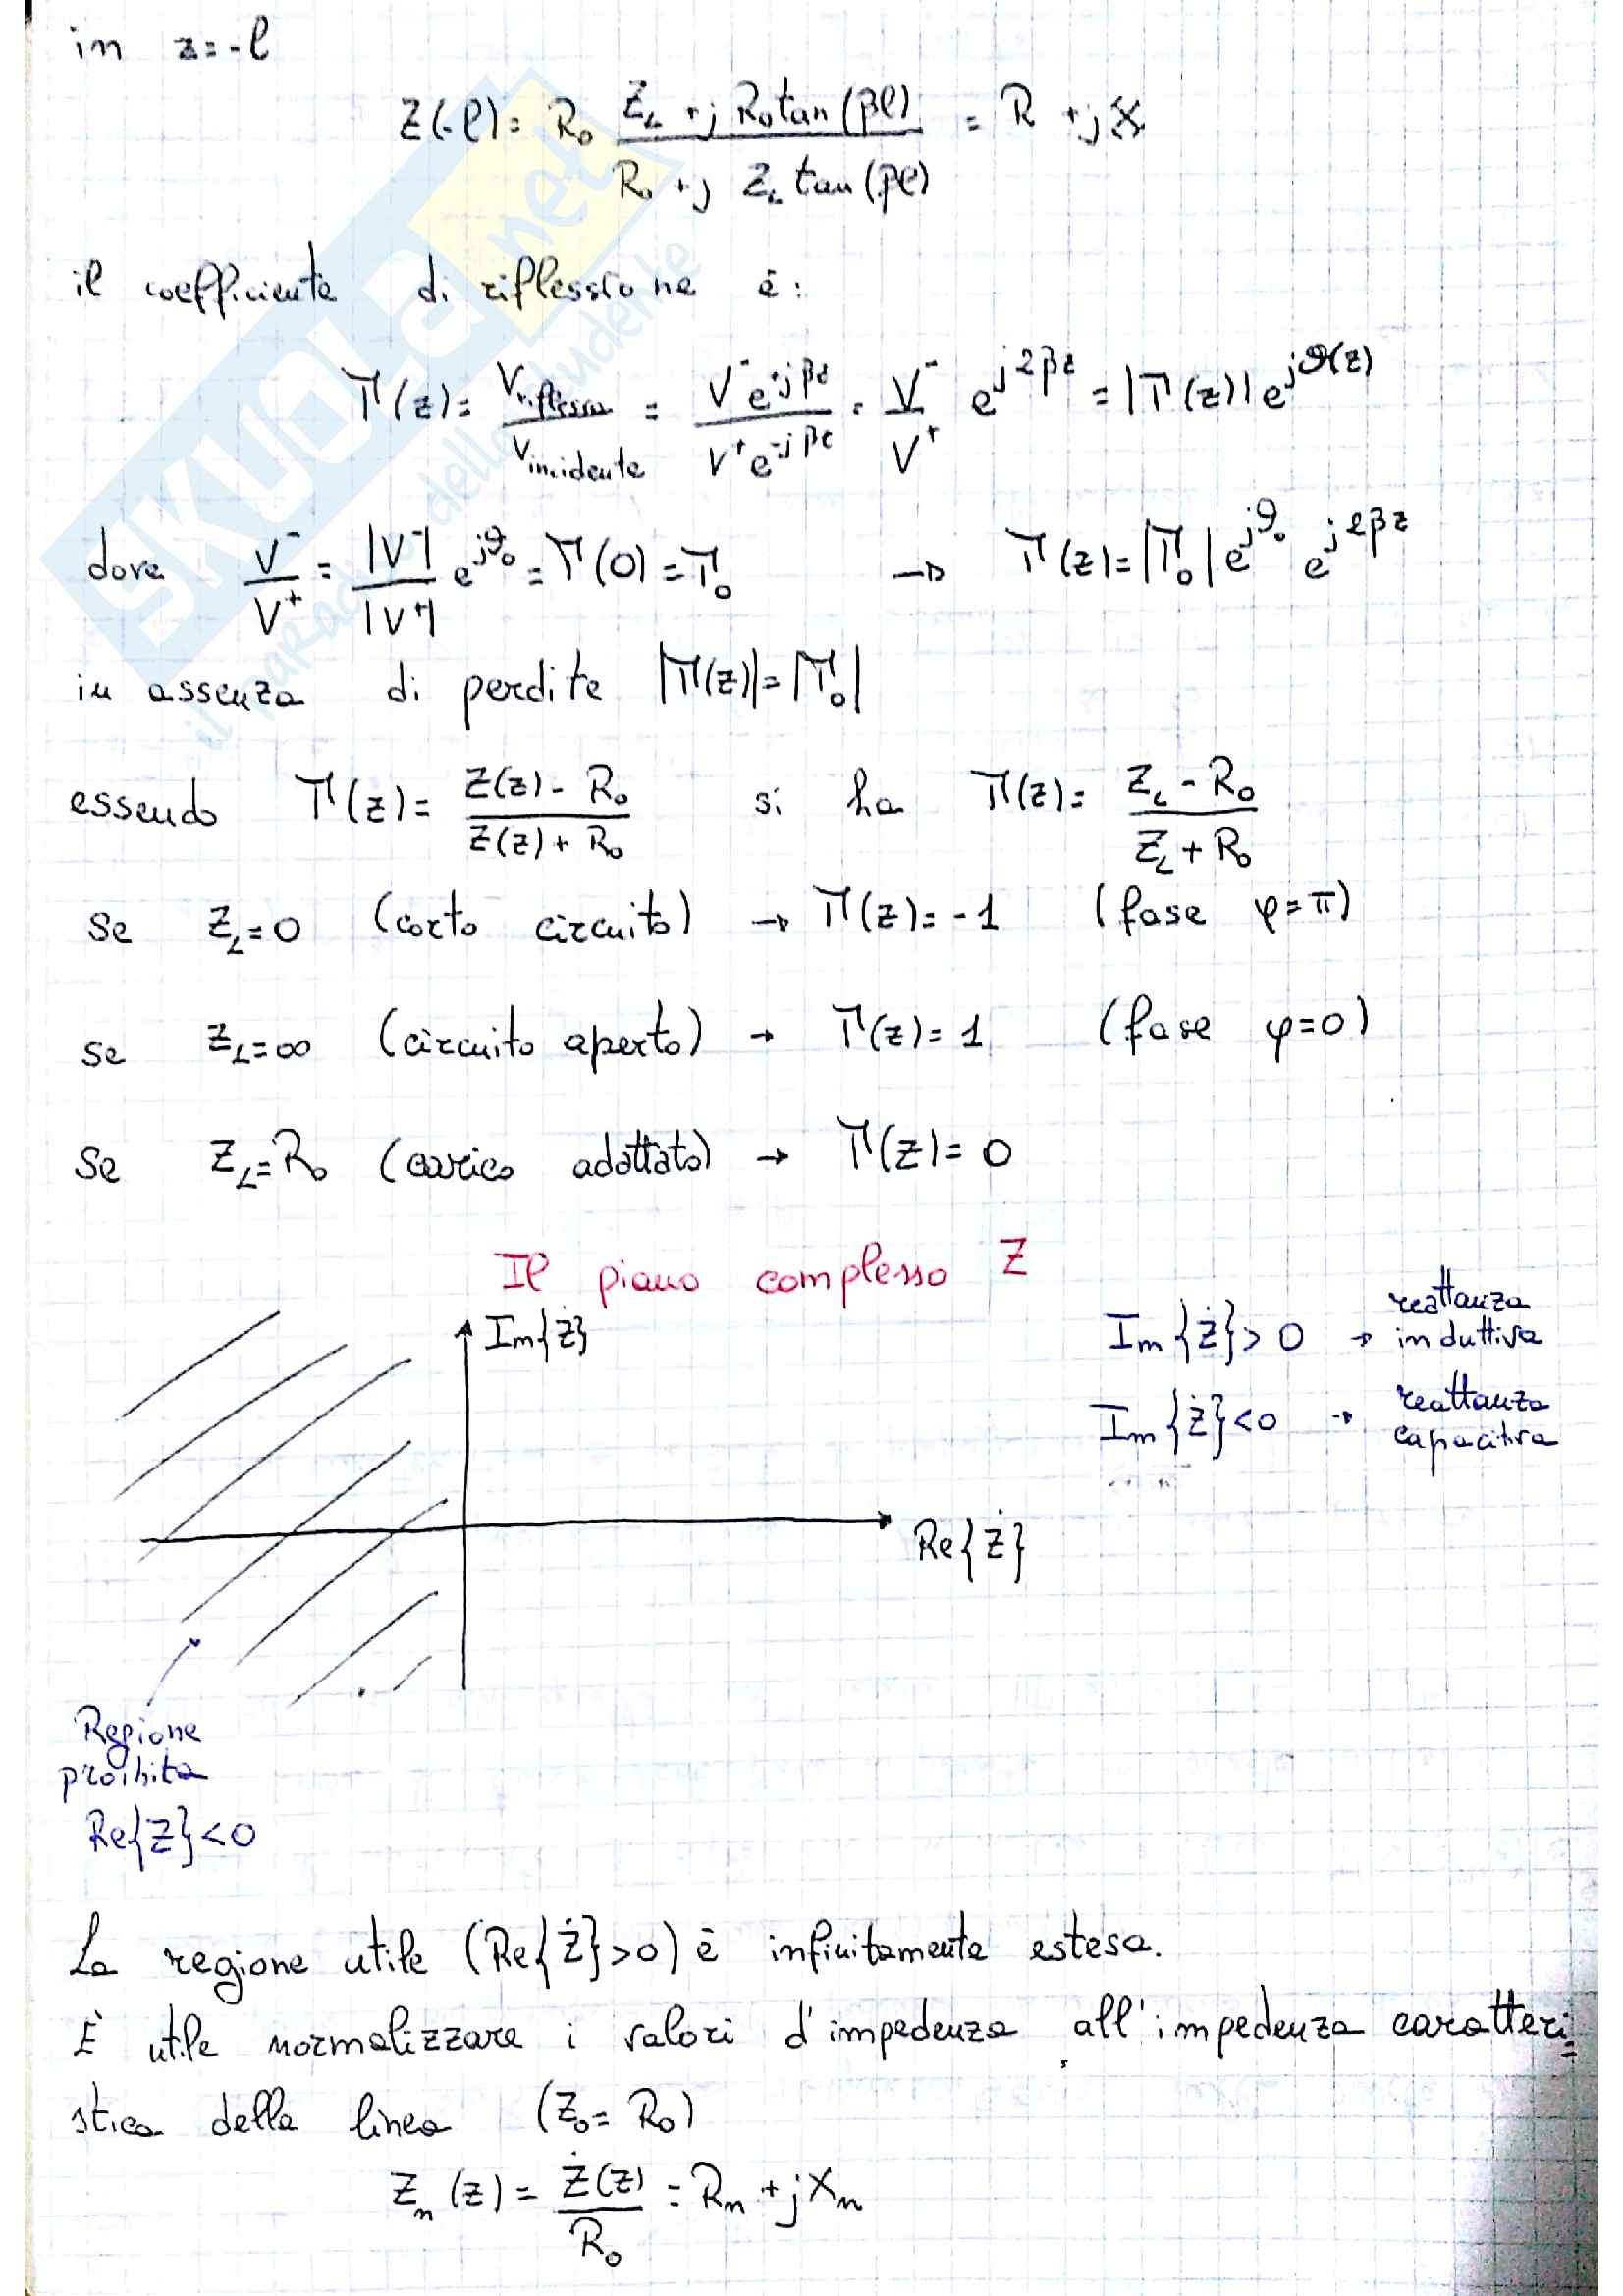 in z=-l
Z(-l) = R₀ (Z_L + j R₀ tan(βl)) / (R₀ + j Z_L tan(βl)) = R + jX
il coefficiente di riflessione è:
Γ(z) = V riflessa / V incidente = V⁻e^{+jβz} / V⁺e^{-jβz} = V⁻/V⁺ e^{j2βz} = |Γ(z)| e^{jϑ(z)}
dove V⁻/V⁺ = |V⁻|/|V⁺| e^{jϑ₀} = Γ(0) = Γ₀ → Γ(z) = |Γ₀| e^{jϑ₀} e^{j2βz}
in assenza di perdite |Γ(z)| = |Γ₀|
essendo Γ(z) = (Z(z) - R₀) / (Z(z) + R₀) si ha Γ(z) = (Z_L - R₀) / (Z_L + R₀)
Se Z_L=0 (corto circuito) → Γ(z) = -1 (fase φ=π)
se Z_L=∞ (circuito aperto) → Γ(z) = 1 (fase φ=0)
Se Z_L=R₀ (carico adattato) → Γ(z) = 0
Il piano complesso Z
Im{Ż}
Im{Ż} > 0 → reattanza induttiva
Im{Ż} < 0 → reattanza capacitiva
Re{Ż}
Regione
proibita
Re{Z} < 0
La regione utile (Re{Ż}>0) è infinitamente estesa.
È utile normalizzare i valori d'impedenza all'impedenza caratteri=
stica della linea (Z₀ = R₀)
Z_n(z) = Ż(z) / R₀ = R_n + jX_n
SKUOLA.net
il paradiso dello studente